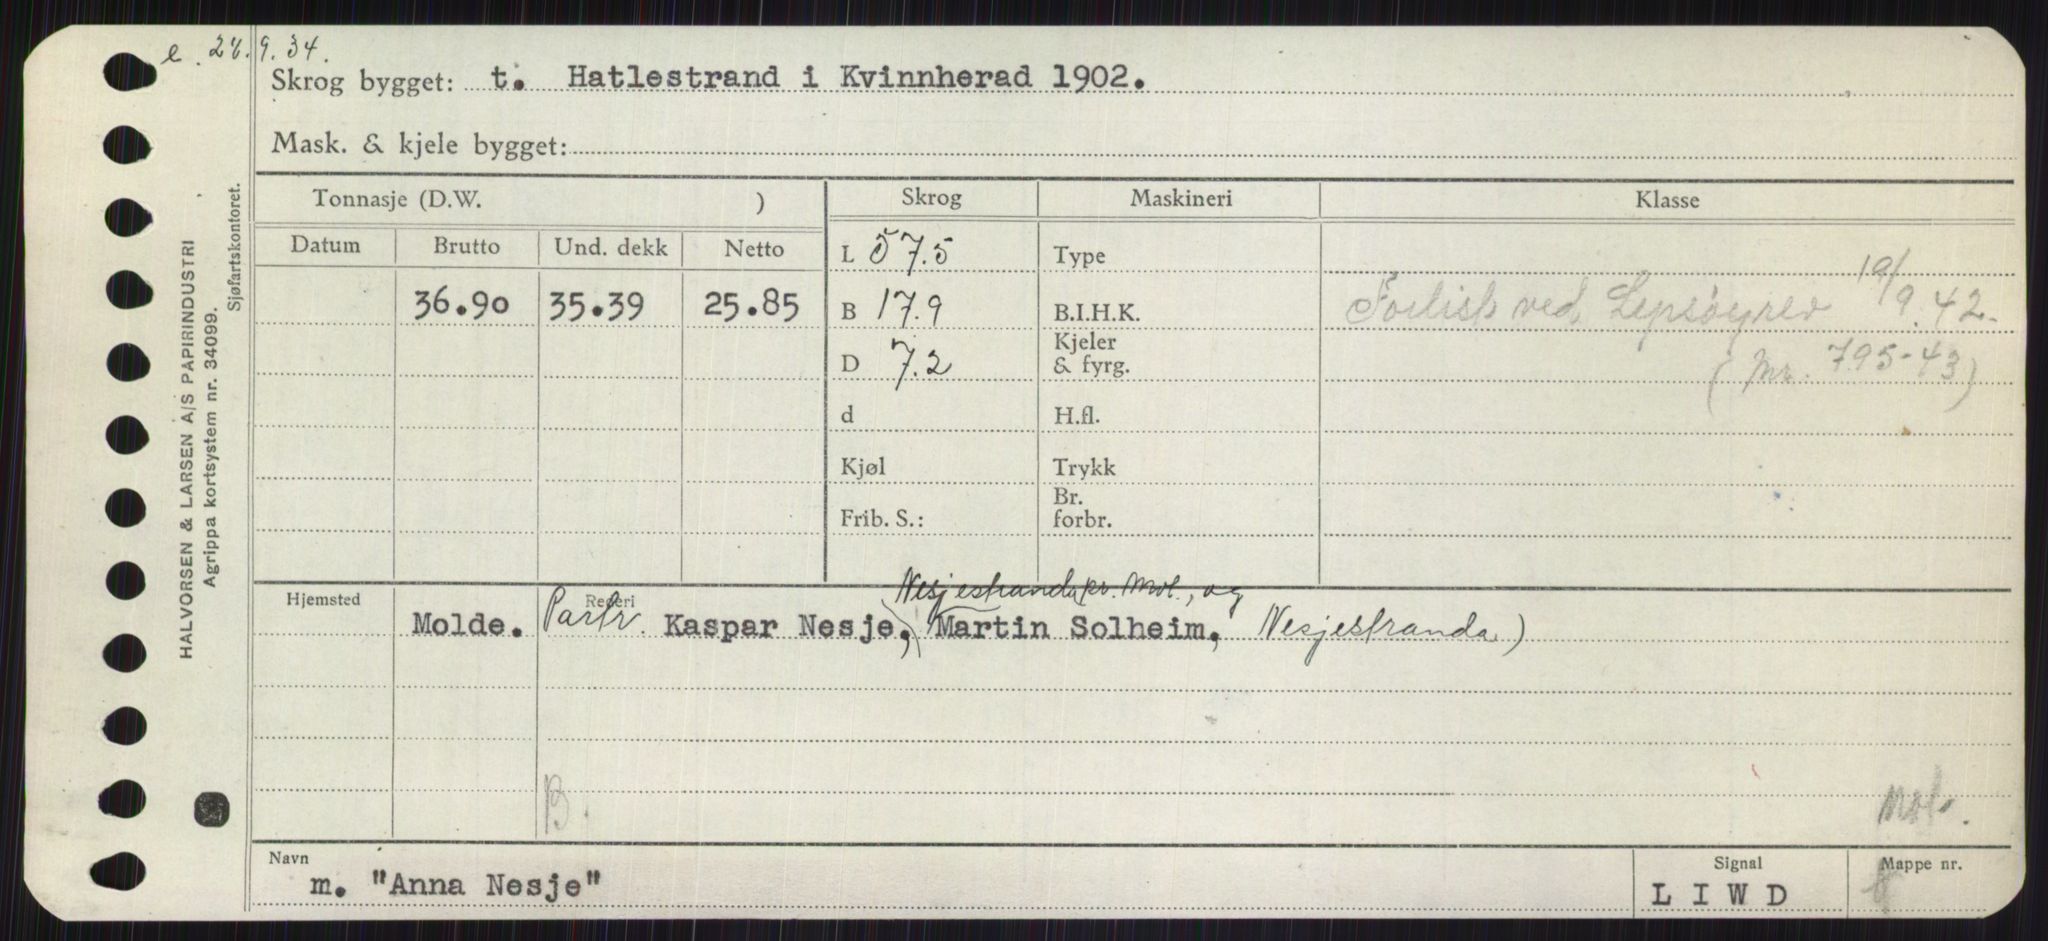 e. 28.9.34.
Skrog bygget: t. Hatlestrand i Kvinnherad 1902.
Mask. & kjele bygget:
Tonnasje (D.W. ) Skrog Maskineri Klasse
Datum Brutto Und. dekk Netto
L 57.5 Type
36.90 35.39 25.85 B 17.9 B.I.H.K. Forlist ved Lepsøyrev 19/9.42.
D 7.2 Kjeler & fyrg. (Mr. 795-43)
d H.fl.
Kjøl Trykk
Frib. S.: Br. forbr.
Nesjestranda pr. Mol., og
Hjemsted Rederi
Molde. Partr. Kaspar Nesje, Martin Solheim, Nesjestranda)
B.
Mol.
Navn Signal Mappe nr.
m. "Anna Nesje" L I W D
HALVORSEN & LARSEN A/S PAPIRINDUSTRI
Agrippa kortsystem nr. 34099.
Sjøfartskontoret.